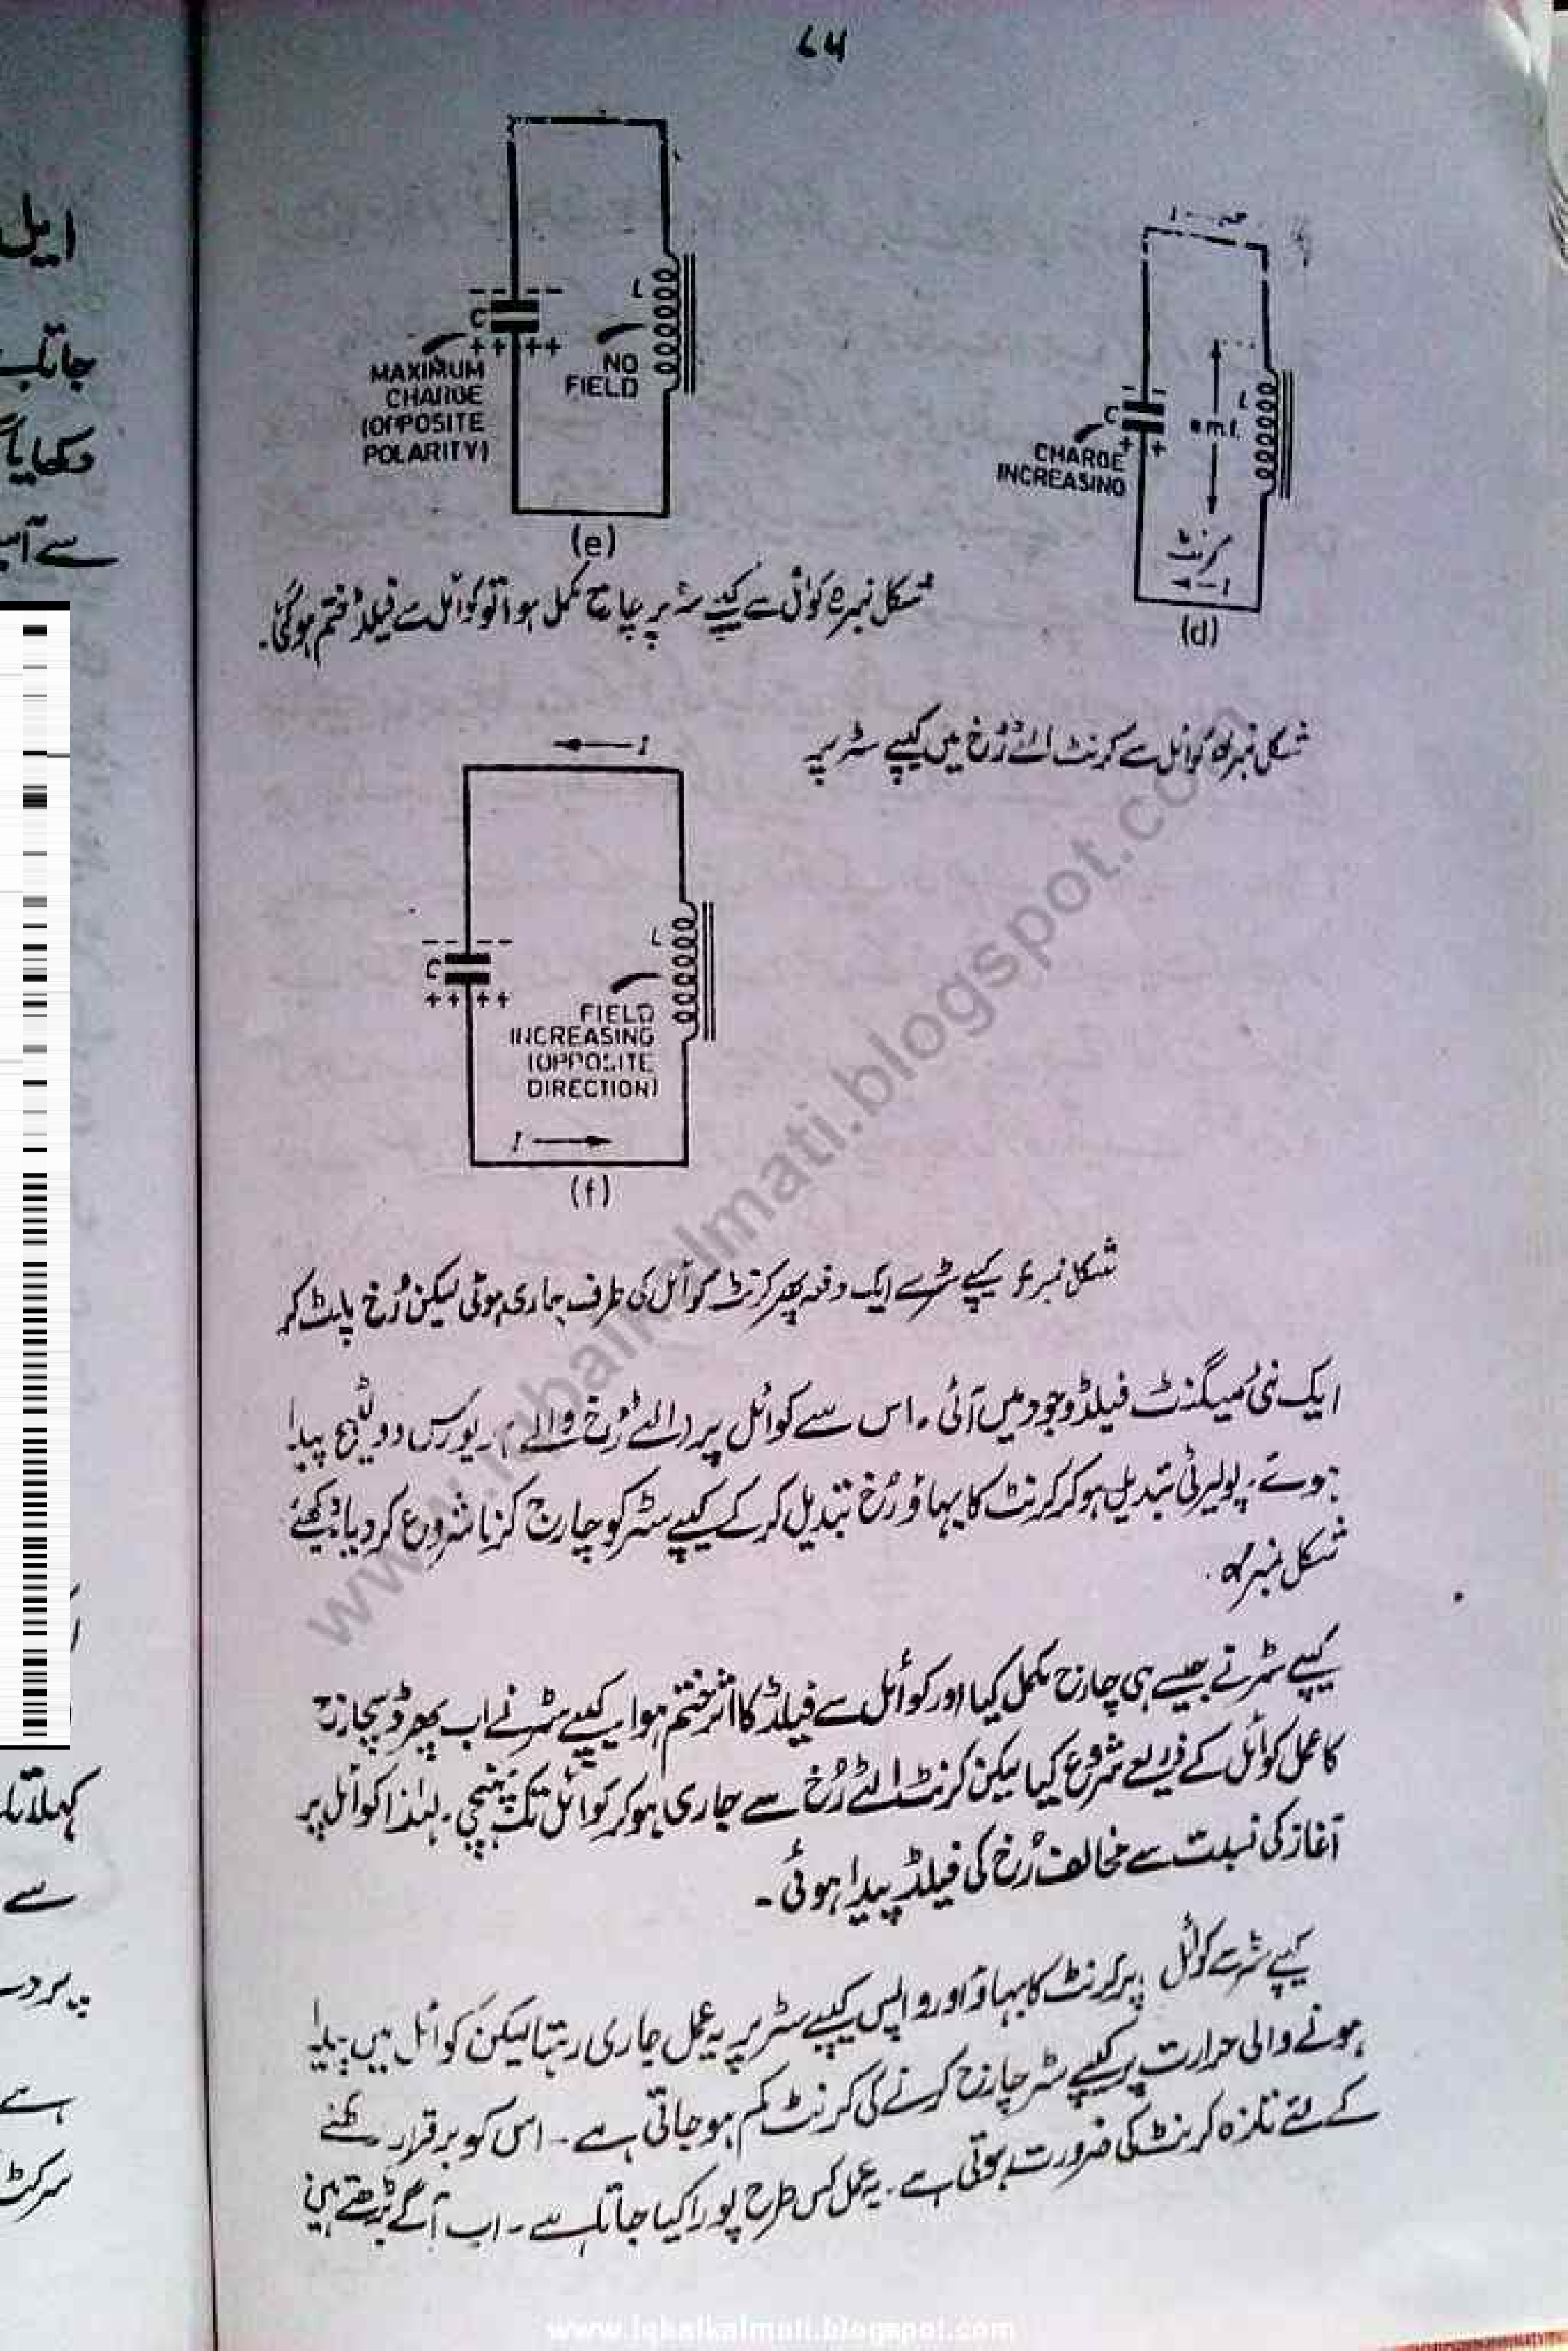 64
MAXIMUM
CHARGE
(OPPOSITE
POLARITY)
C
- - - -
+ + + +
L
NO
FIELD
(e)
I
C
- -
+ +
L
e.m.f.
CHARGE
INCREASING
کرنٹ
I
(d)
شکل نمبر e کوائل سے کیپے سٹر پر چارج مکمل ہوا تو کوائل سے فیلڈ ختم ہو گئی۔
شکل نمبر d کوائل سے کرنٹ الٹے رُخ میں کیپے سٹر پر
I
C
- - - -
+ + + +
L
FIELD
INCREASING
(OPPOSITE
DIRECTION)
I
(f)
شکل نمبر f کیپے سٹر سے ایک دفعہ پھر کرنٹ کوائل کی طرف جاری ہوئی لیکن رُخ پلٹ کر
ایک نئی میگنٹ فیلڈ وجود میں آئی۔ اس سے کوائل پر (الٹے رُخ والے) ریورس وولٹیج پیدا
ہوئے۔ پولیرٹی تبدیل ہو کر کرنٹ کا بہاؤ رُخ تبدیل کر کے کیپے سٹر کو چارج کرنا شروع کر دیا دیکھئے
شکل نمبر d۔
کیپے سٹر نے جیسے ہی چارج مکمل کیا اور کوائل سے فیلڈ کا اثر ختم ہوا۔ کیپے سٹر نے اب پھر ڈسچارج
کا عمل کوائل کے ذریعے شروع کیا لیکن کرنٹ الٹے رُخ سے جاری ہو کر کوائل تک پہنچی۔ لہٰذا کوائل پر
آغاز کی نسبت سے مخالف رُخ کی فیلڈ پیدا ہوئی۔
کیپے سٹر سے کوائل پر کرنٹ کا بہاؤ اور واپس کیپے سٹر پر یہ عمل جاری رہتا لیکن کوائل میں پیدا
ہونے والی حرارت پر کیپے سٹر چارج کرنے کی کرنٹ کم ہو جاتی ہے۔ اس کو برقرار رکھنے
کے لئے تازہ کرنٹ کی ضرورت ہوتی ہے۔ یہ عمل کس طرح پورا کیا جاتا ہے۔ اب آگے بڑھتے ہیں
ایل
سے
ہے
سرکٹ
www.iqbalkalmati.blogspot.com
www.iqbalkalmati.blogspot.com